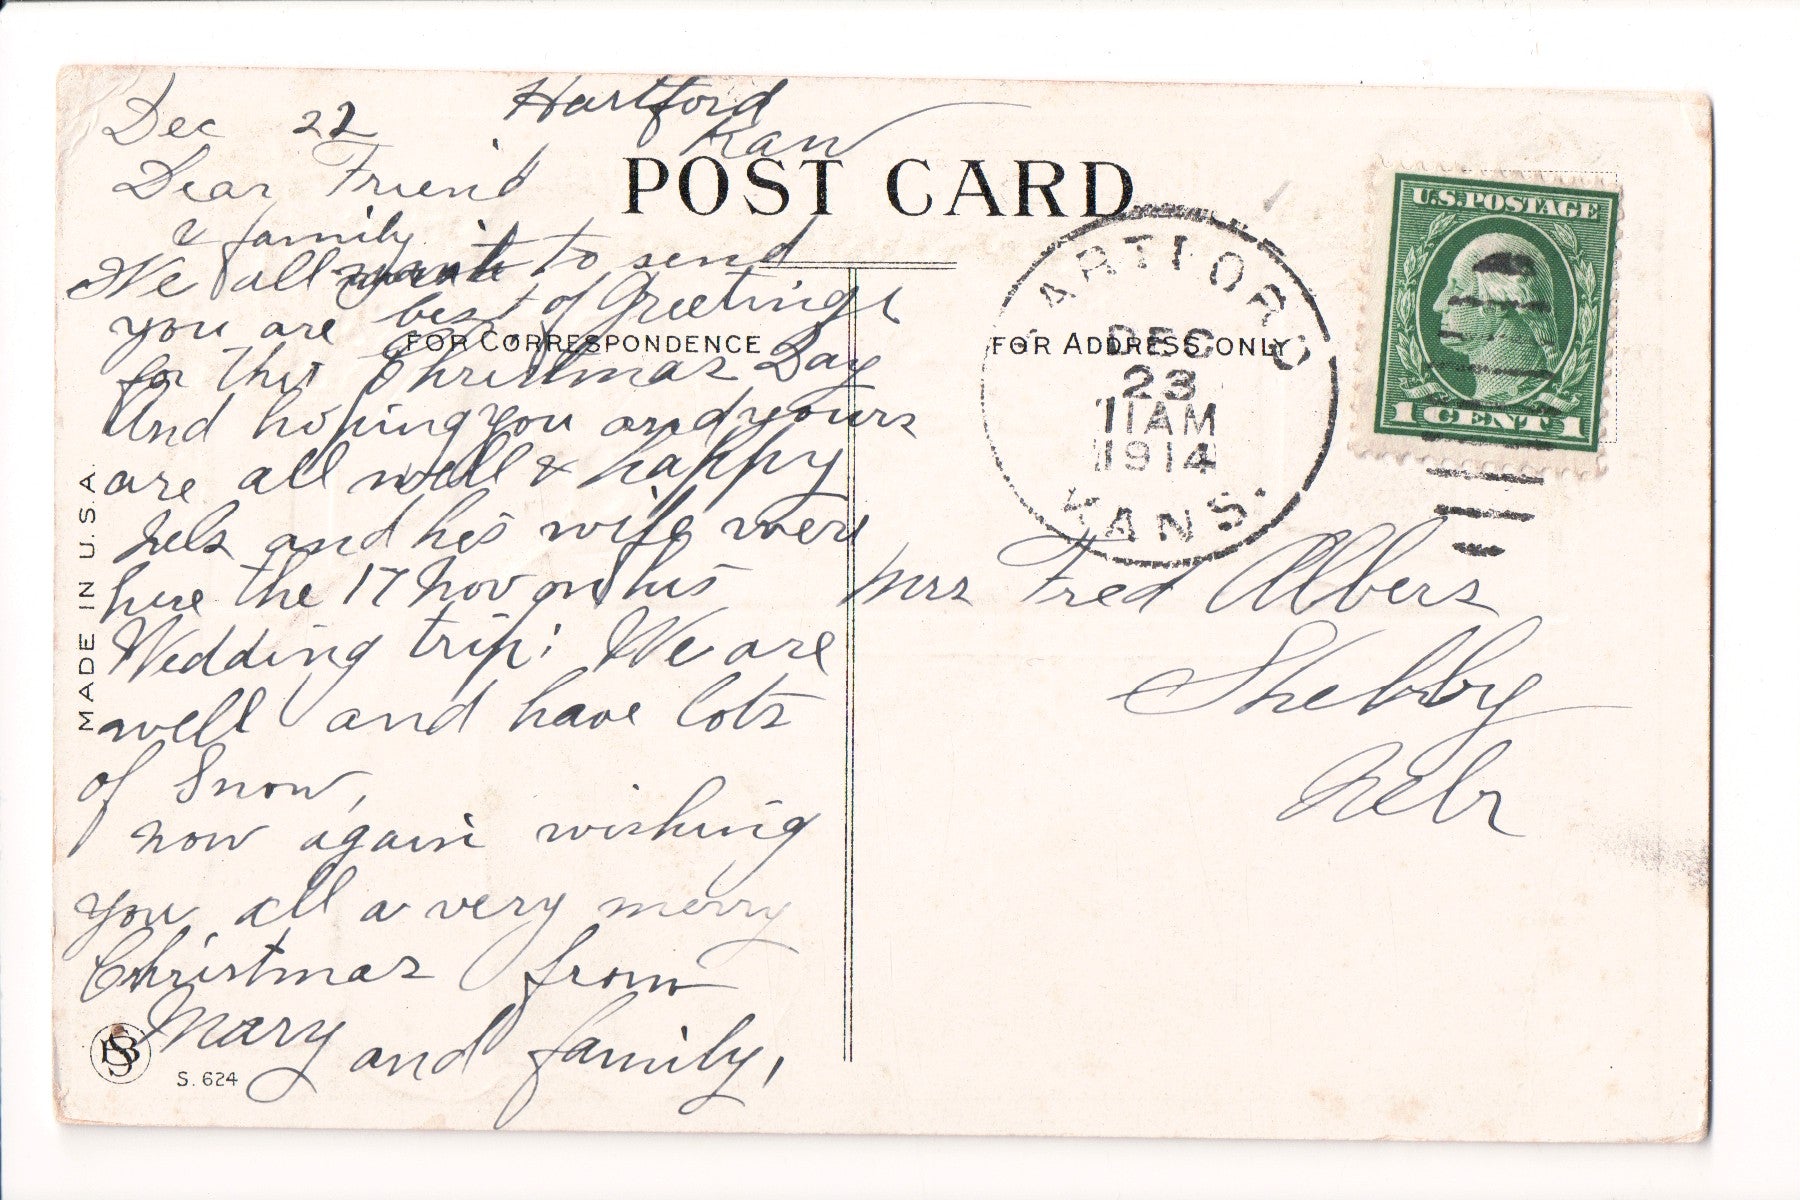 Dec 22 Hartford
Kan
Dear Friend
& family
We all want to send
you are best of Greetings
for this Christmas Day
And hoping you and yours
are all well & happy
Nels and his wife were
here the 17 Nov on his
Wedding trip: We are
well and have lots
of Snow,
now again wishing
you all a very merry
Christmas from
Mary and family,
MADE IN U.S.A.
S. 624
POST CARD
FOR CORRESPONDENCE
FOR ADDRESS ONLY
ARTFORD
DEC
23
11AM
1914
KANS.
U.S. POSTAGE
1 CENT 1
Mrs Fred Albers
Shelby
Nebr